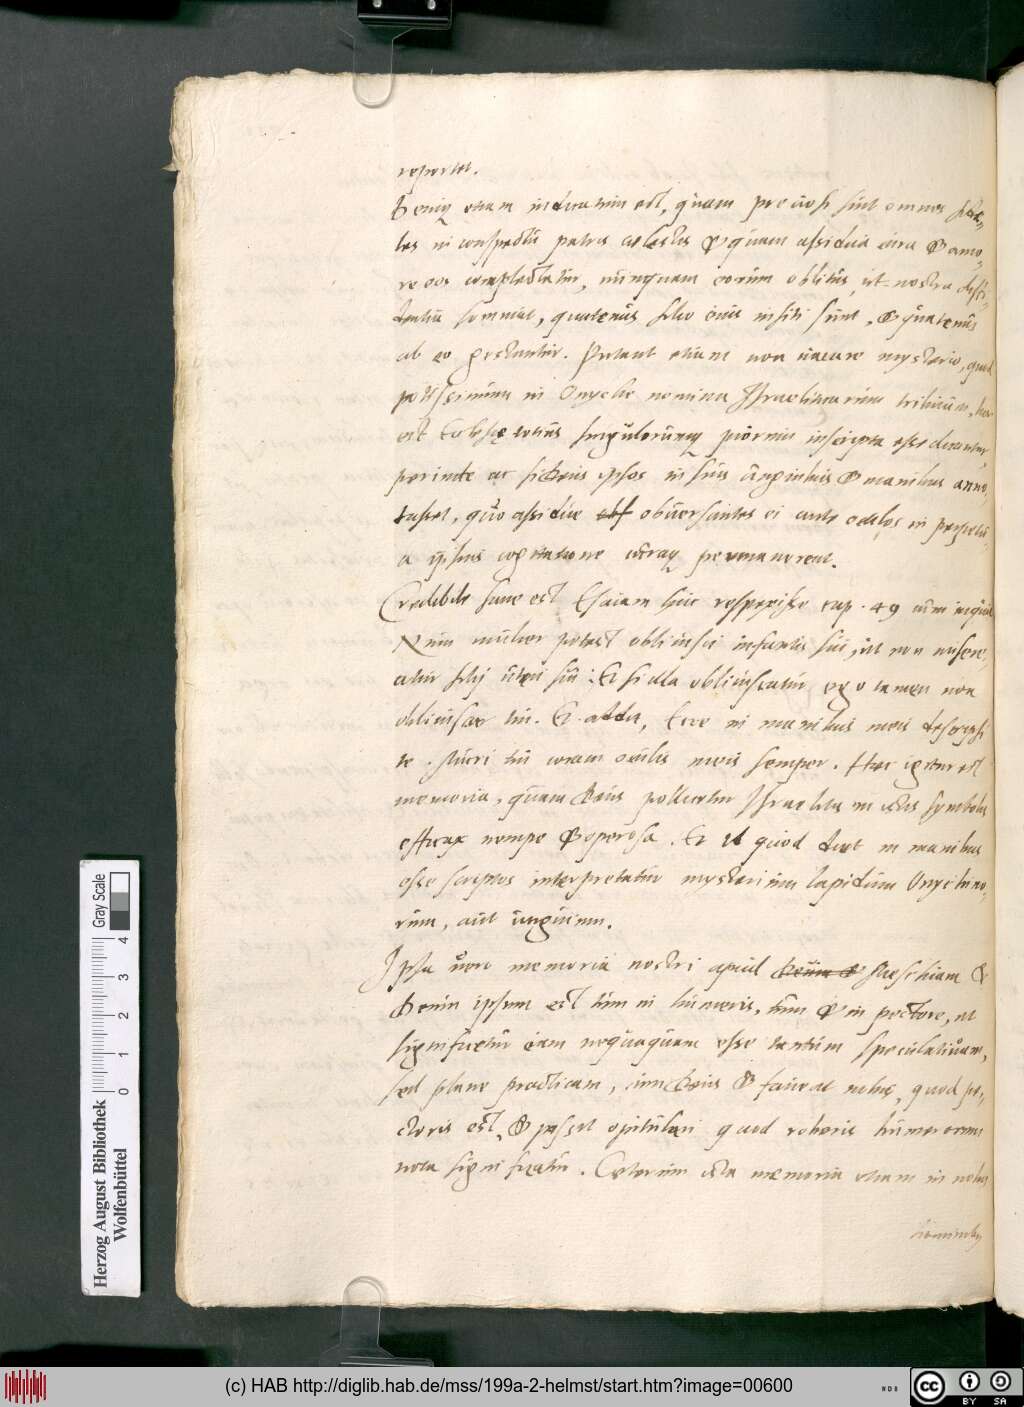 reportet.
Deniq etiam indicatum est, quam preciosi sint omnes fide„
les in conspectu patris cœlestis & quam assidua cura & amo„
re eos complectatur, nunquam eorum oblitus, ut nostra
quatenus filio eius insiti sunt, & quatenus
ab eo gestantur. Putant etiam non uacare mysterio, quod
potissimum in Onyche nomina Israeliticarum tribuum, hoc
est Ecclesię totius singulorumq piorum inscripta esse dicantur
perinde ac si Deus ipsos in suis unguibus & manibus anno„
tasset, quo assidue obuersantes ei ante oculos in perpetu„
a ipsius cogitatione curaq permanerent.
Credibile sane est Esaiam huc respexisse cap. 49 cum inquit
Num mulier potest obliuisci infantis sui, ut non misere„
atur filij uteri sui? Et si illa obliuiscatur, ego tamen non
obliuiscar tui. Et addit, Ecce in manibus meis descripsi
te. Muri tui coram oculis meis semper. Hæc igitur est
memoria, quam Deus pollicetur Israelitis in istis symbolis
efficax nempe & operosa. Et id quod dicit in manibus
esse scriptos interpretatur mysterium lapidum Onychino„
rum, aut unguium.
Ipsa uero memoria nostri apud Deum & Messchiam &
Deum ipsum est tum in humeris, tum & in pectore, ut
significetur eam nequaquam esse tantum speculatiuam,
sed plane practicam, cum Deus & faueat nobis, quod pe„
ctoris est, & possit opitulari quod roboris humerorum
nota significatur. Cæterum ista memoria etiam in nobis
hominibus
Herzog August Bibliothek
Wolfenbüttel
0 1 2 3 4
Gray Scale
(c) HAB http://diglib.hab.de/mss/199a-2-helmst/start.htm?image=00600
cc BY SA